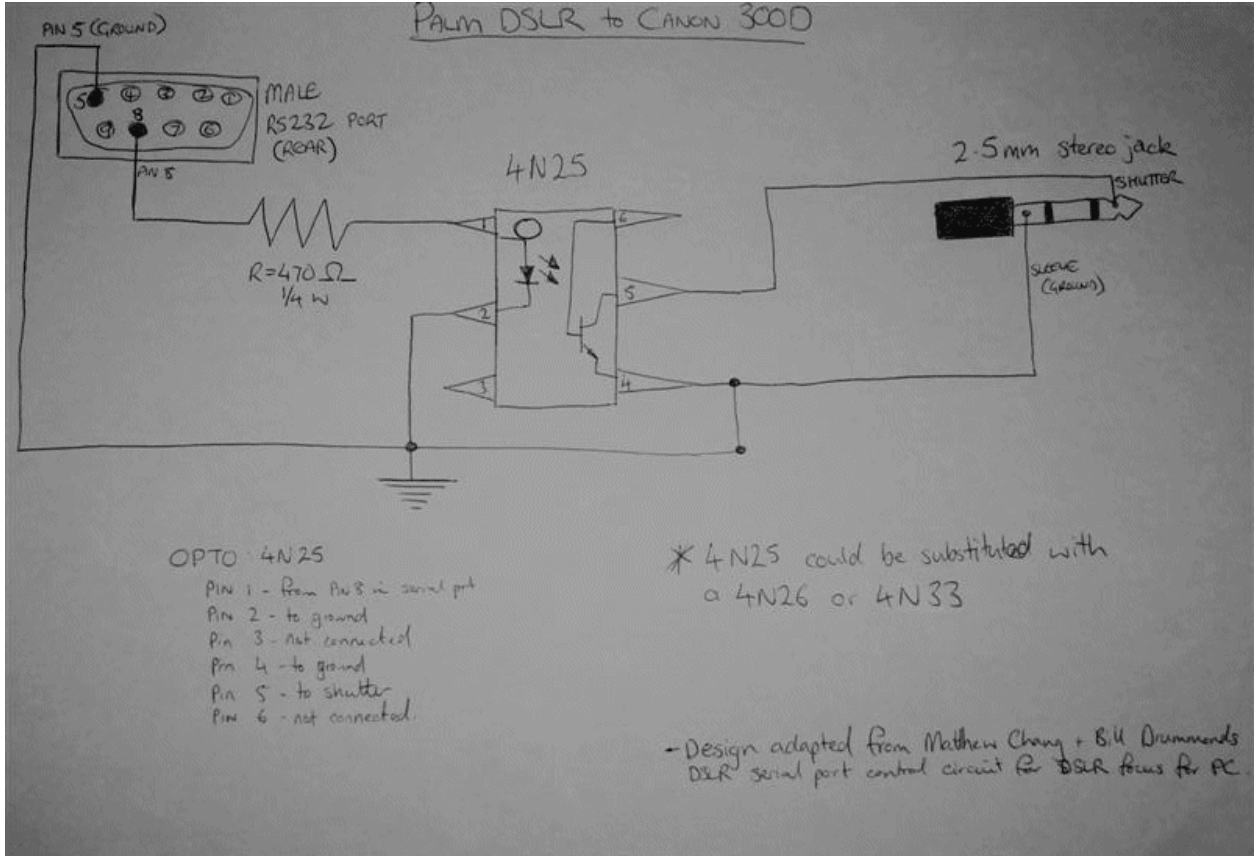 PALM DSLR to CANON 300D
PIN 5 (GROUND)
5 4 3 2 1
9 8 7 6
MALE
RS232 PORT
(REAR)
PIN 8
R=470 Ω
1/4 W
4N25
1
2
3
6
5
4
2.5mm stereo jack
SHUTTER
SLEEVE
(GROUND)
OPTO 4N25
PIN 1 - from PIN 8 in serial prt
PIN 2 - to ground
Pin 3 - not connected
Pin 4 - to ground
Pin 5 - to shutter
PIN 6 - not connected.
* 4N25 could be substituted with
a 4N26 or 4N33
- Design adapted from Matthew Chang + Bill Drummonds
DSLR serial port control circuit for DSLR focus for PC.